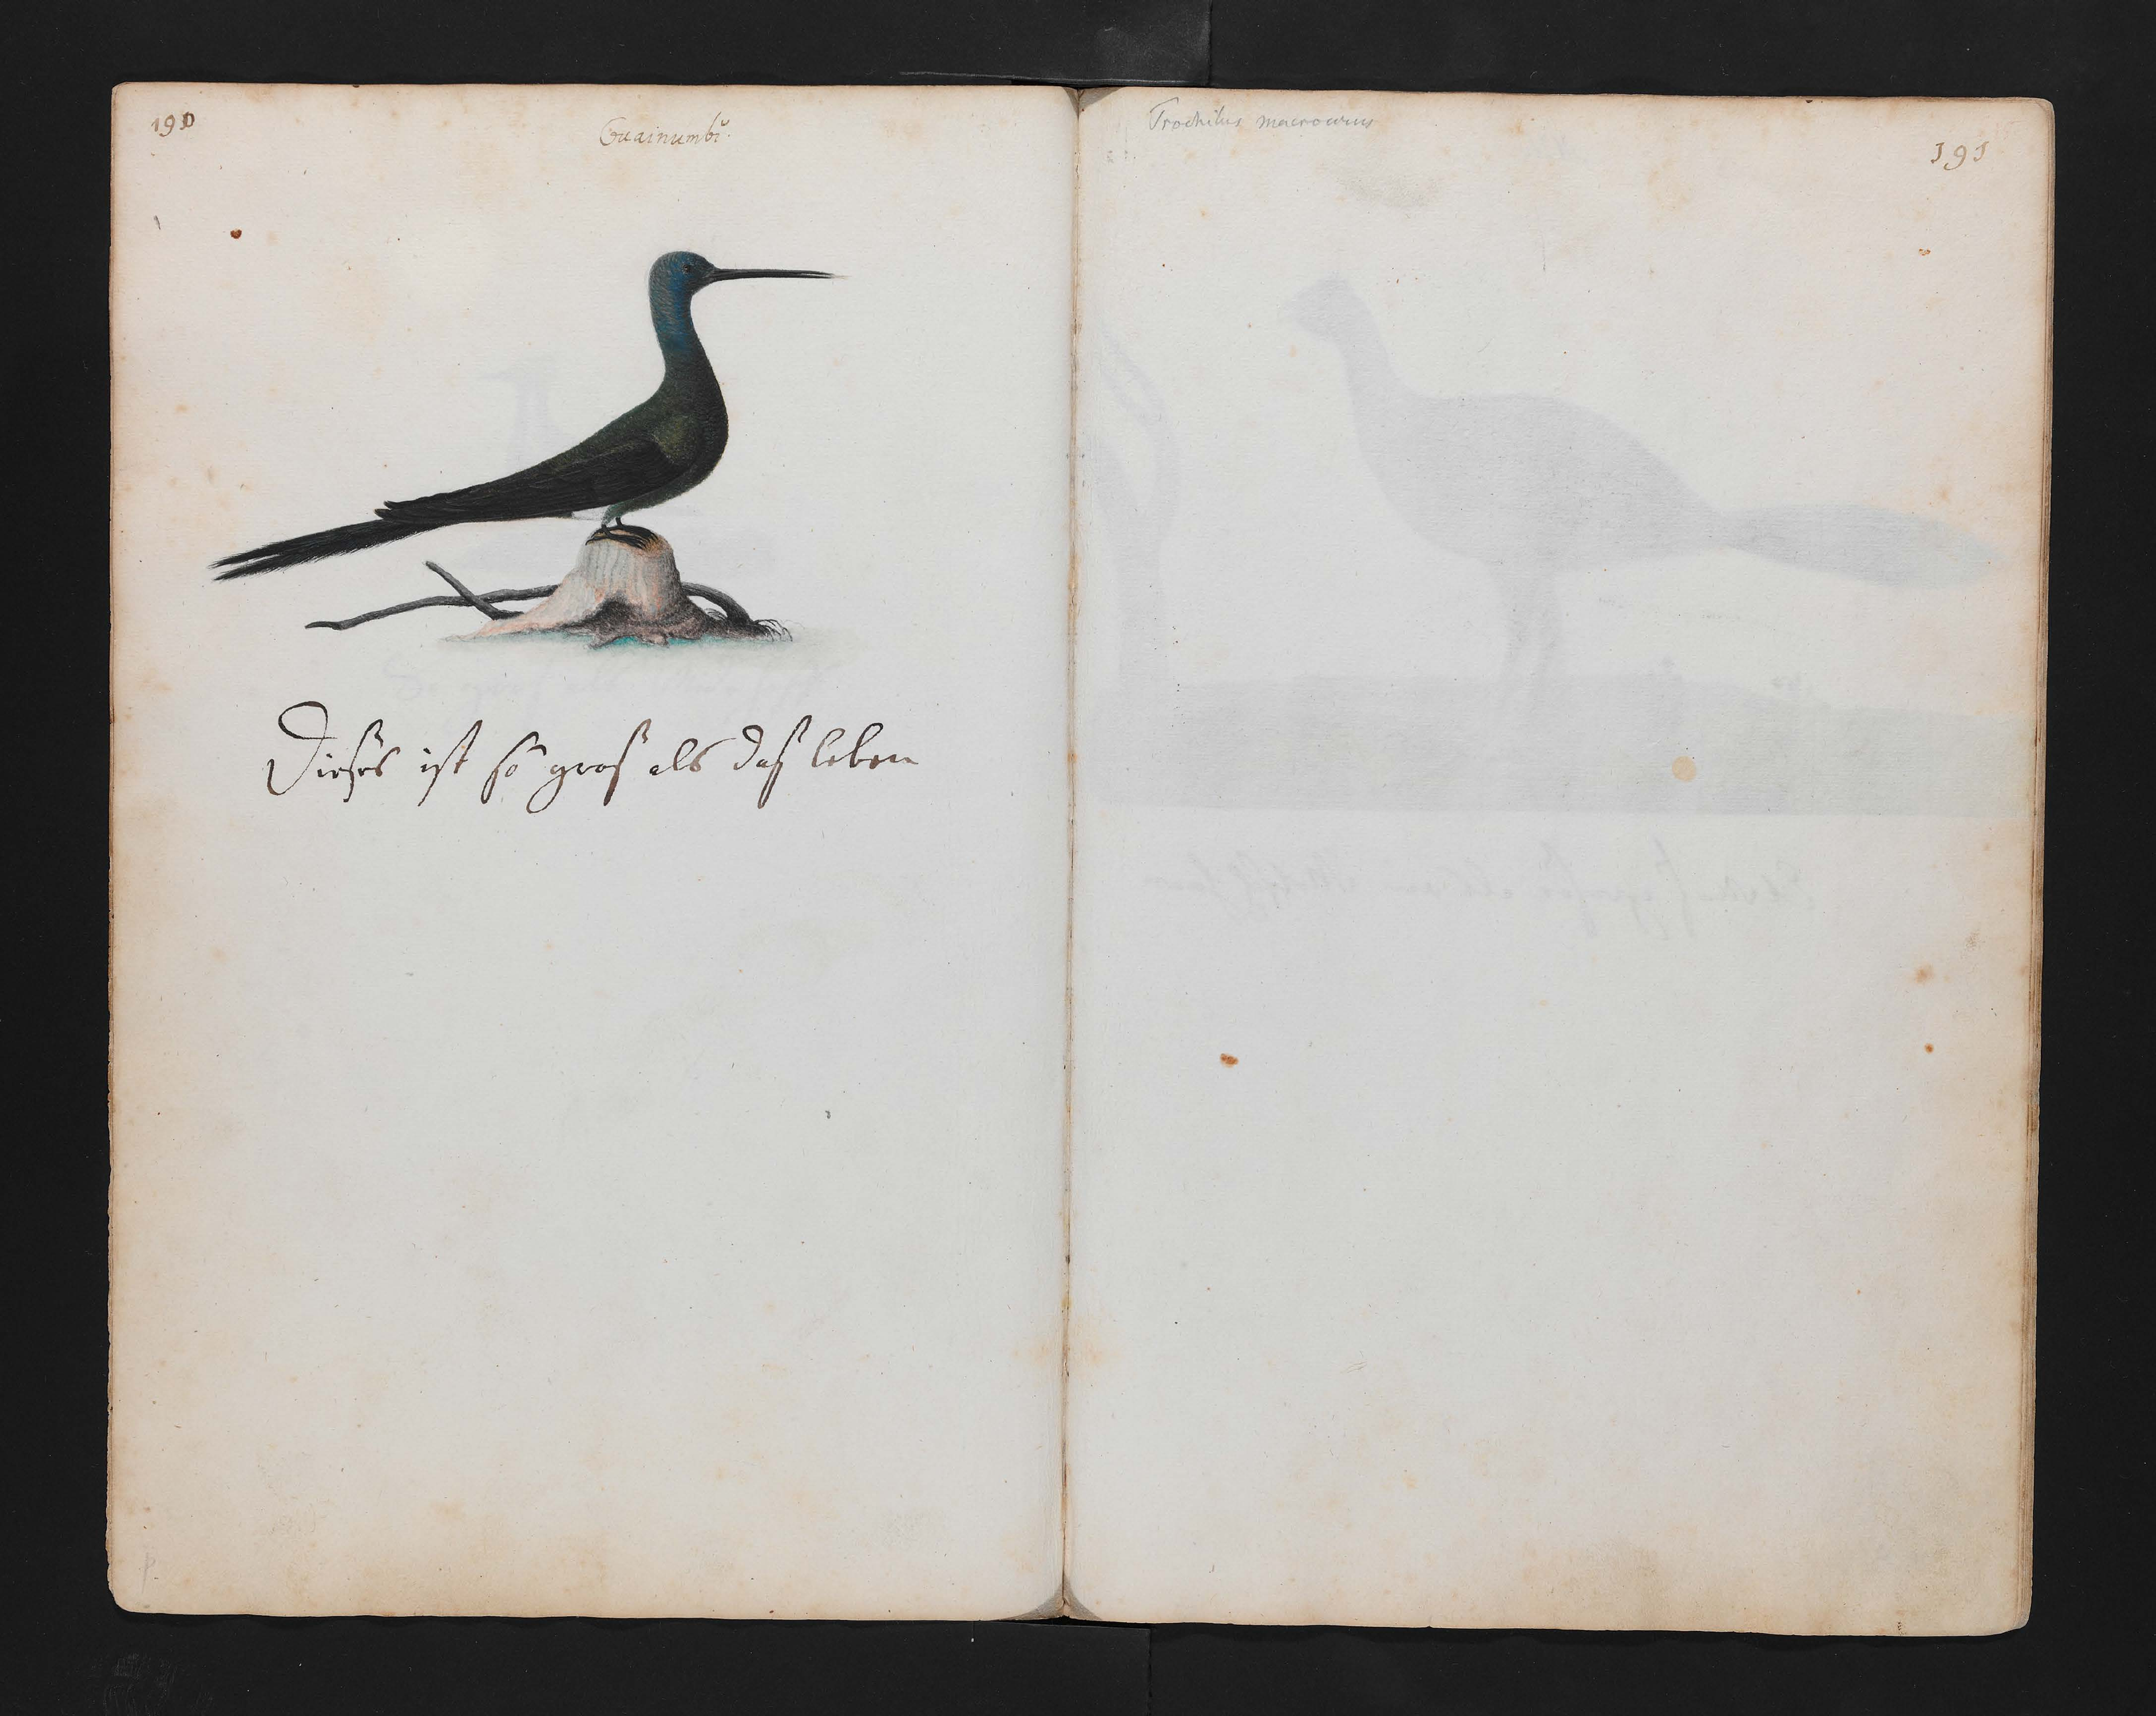 190
Guainumbi.
Dieses ist so gros als daß leben
Trochilus macrourus
191